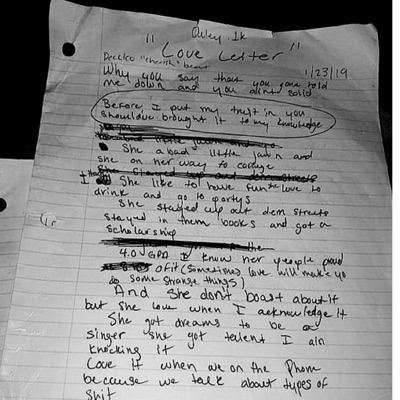 Quley. 1k
"Love Letter"
"cherish" beat 1/23/19
Why you say that you gone told
me down and you aint solid
Before I put my trust in you
shouldve brought it to my knowledge
She a bad little jawn and
she on her way to college
I She like to have fun she love to
drink and go to partys
She stayed up out dem streets
stayed in them books and got a
scholarship
4.0 GPA I know her people proud
of it (Sometimes love will make yo
do some strange things)
And she don't boast about it
but she love when I acknowledge it
She got dreams to be a
singer she got talent I ain
knocking it
Love it when we on the phone
because we talk about types of
shit